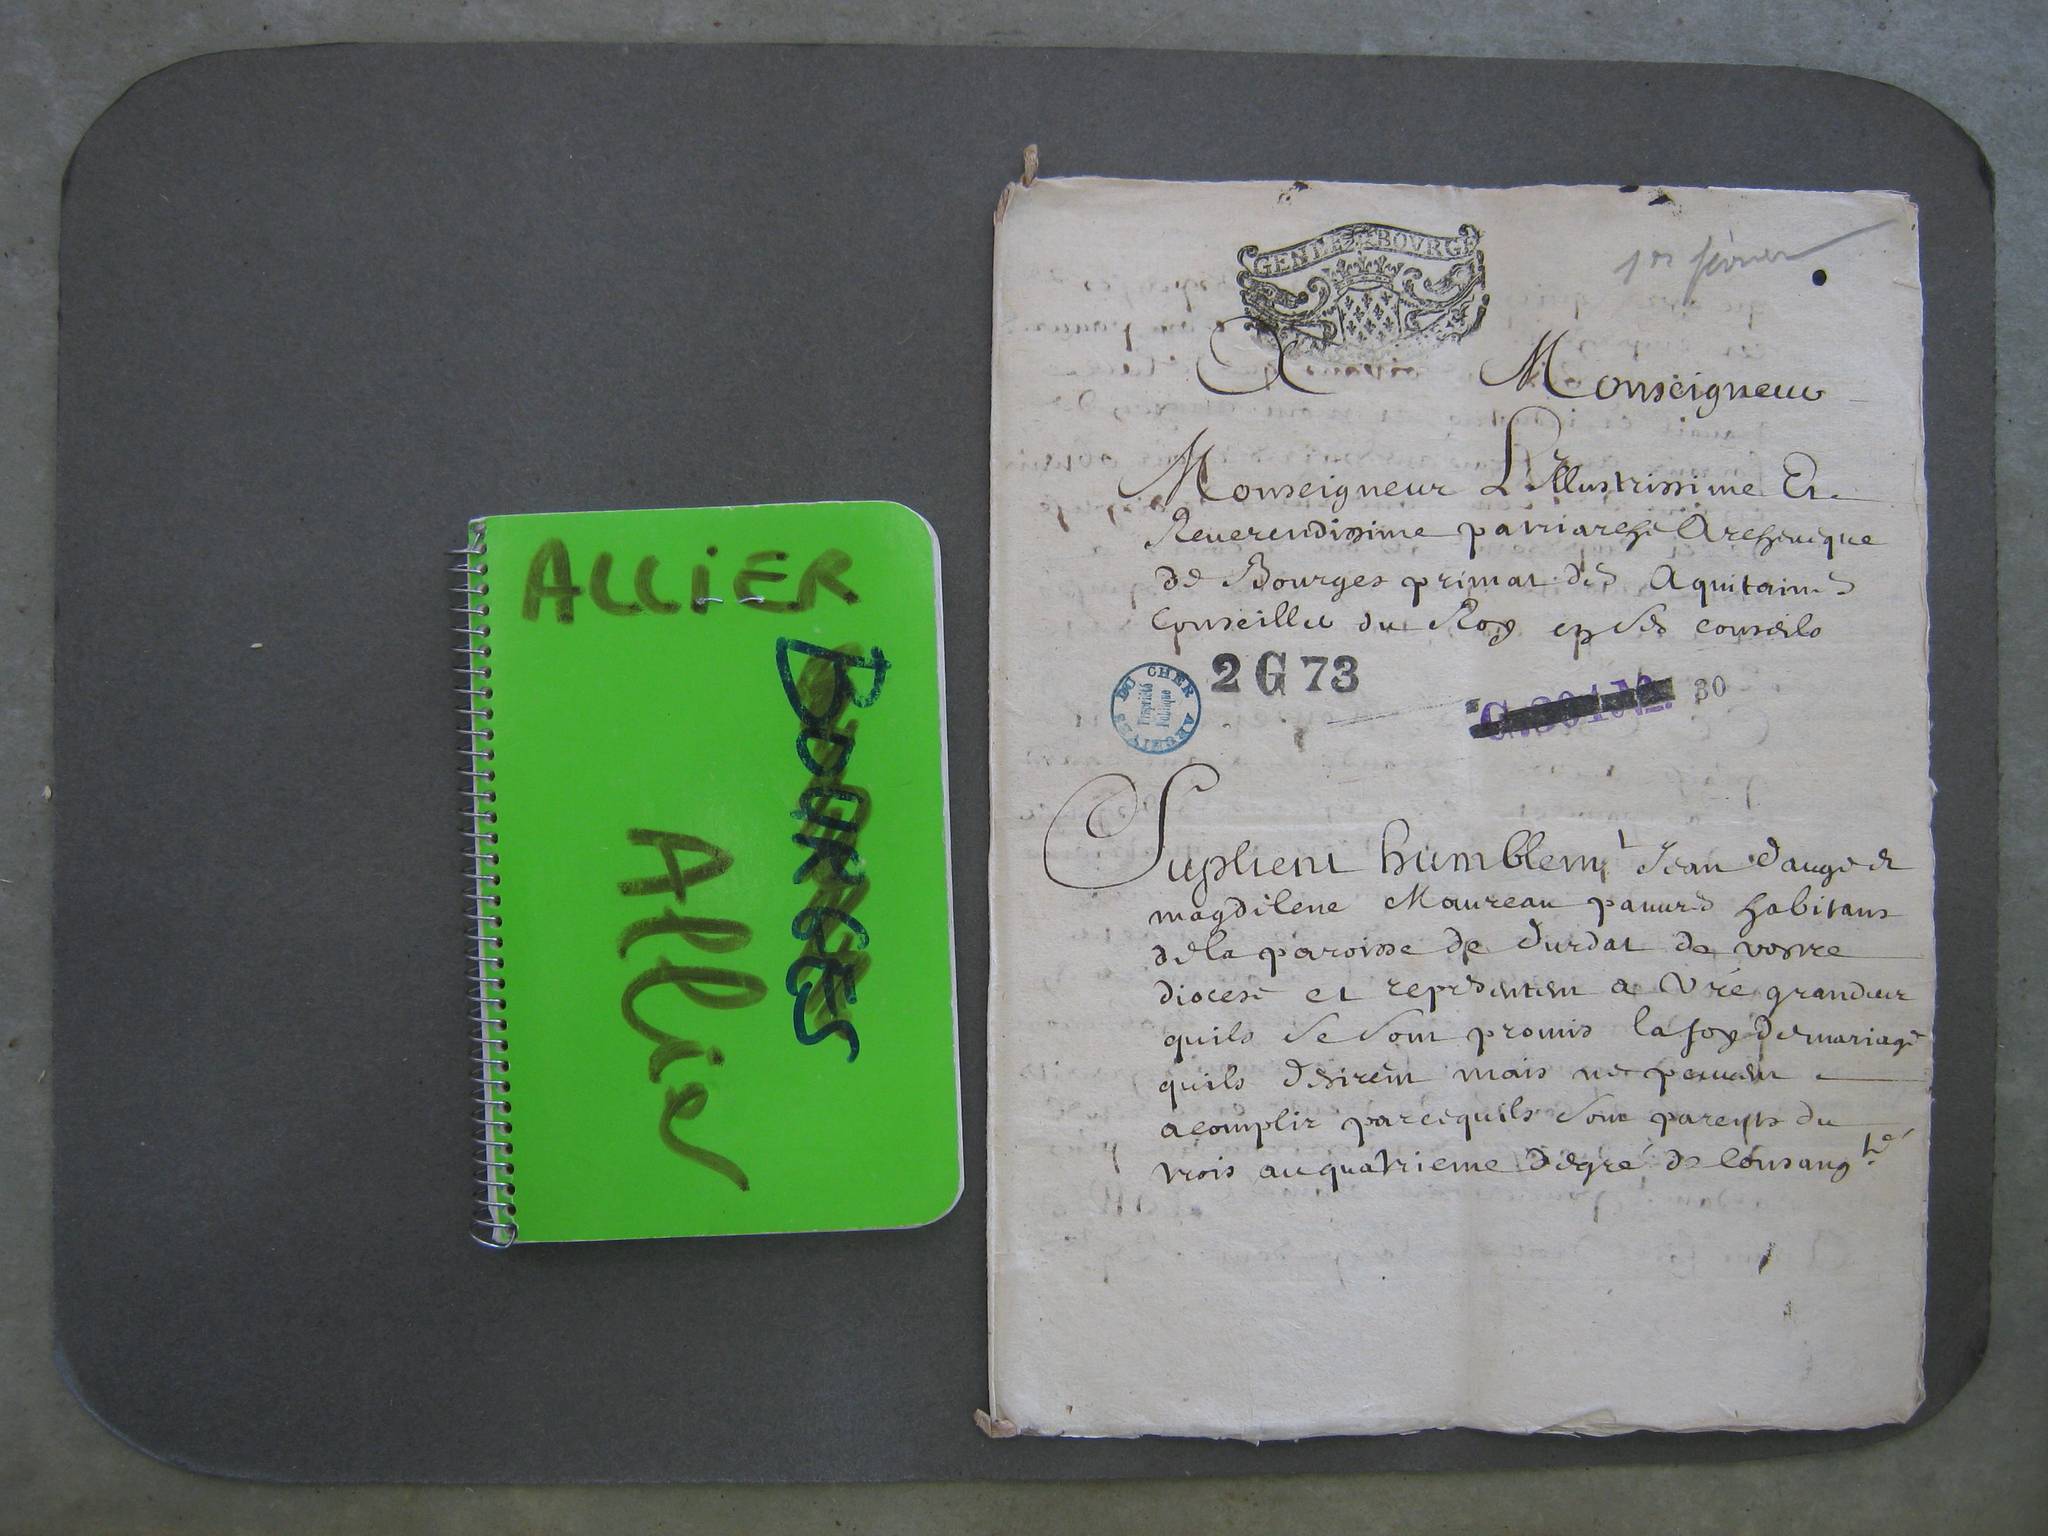 ALLiER
BOURGES
Allier
GEN DE BOVRGE
1er février
A Monseigneur
Monseigneur L Illustrissime Et
Reuerendissime patriarche Archeuêque
de Bourges primat des Aquitaines
Conseiller du Roy en ses conseils
ARCHIVES DU CHER
Propriété
Publique
2 G 73
30
Suplient humblemt Jean Dauges et
magdilene Maureau pauures habitans
de la paroisse de Durdat de vostre
diocese et representent a Vre grandeur
quils se sont promis la foy de mariage
quils desirent mais ne peuuent
acomplir parcequils sont parents du
trois au quatrieme degré de consangté